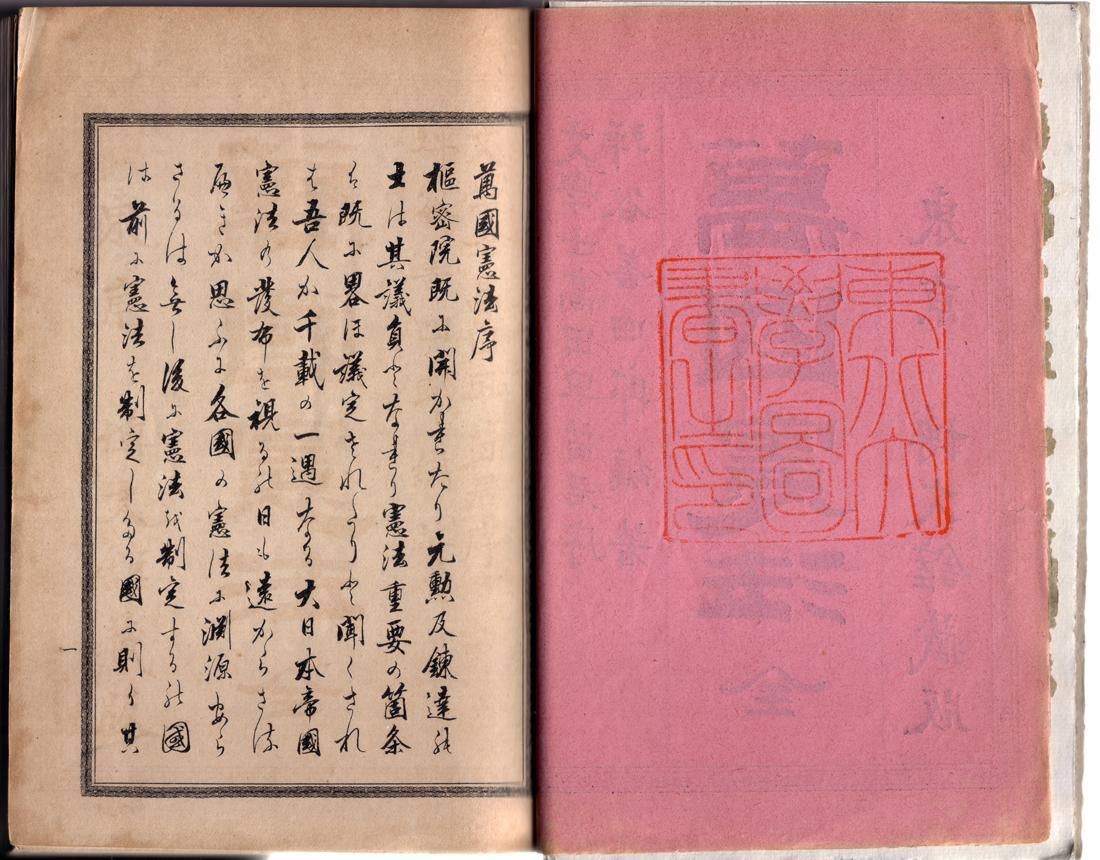 學圖
書之印
萬國憲法序
樞密院既に開かれたり元勲及錬達の
士は其議員となれり憲法重要の箇条
は既に畧ほ議定されたりと聞くされ
は吾人か千載の一遇なる大日本帝國
憲法の發布を視るの日も遠からさる
へきか思ふに各國の憲法に淵源あら
さるは無し後に憲法を制定するの國
は前に憲法を制定したる國に則り其
一